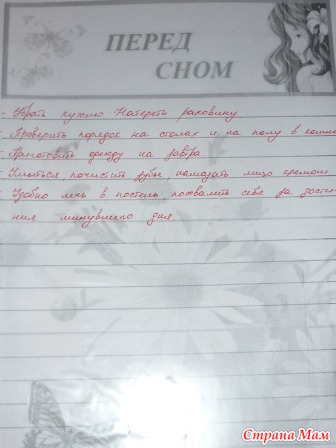 ПЕРЕД
СНОМ
- Убрать кухню. Натереть раковину
- Проверить порядок на столах и на полу в комна
- Приготовить одежду на завтра.
- Умыться, почистить зубы, намазать лицо кремом
- Удобно лечь в постель, похвалить себя за дости
ния минувшего дня.
Страна Мам